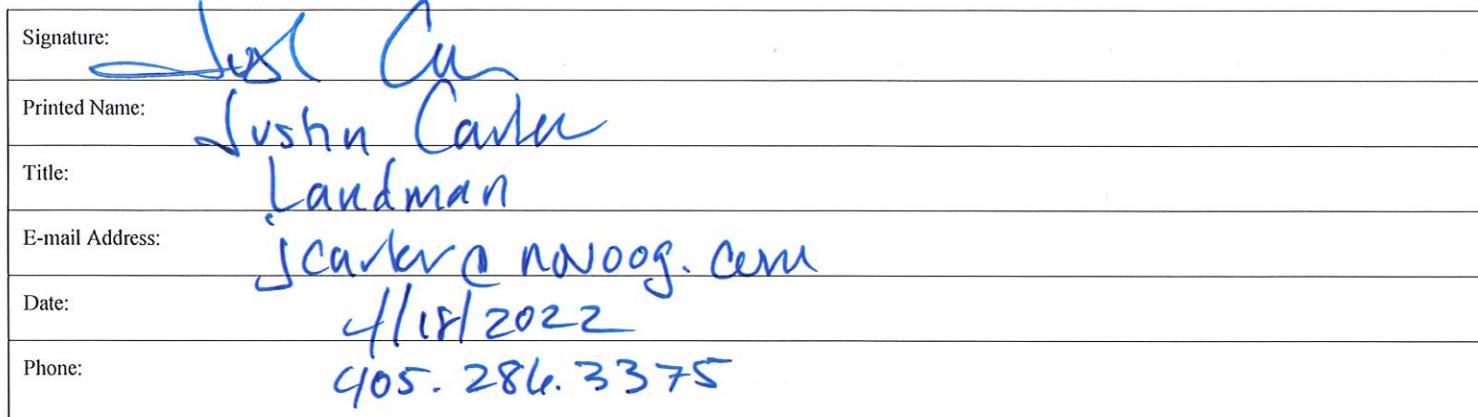 Signature:
Printed Name: Justin Carter
Title: Landman
E-mail Address: jcarter@novoog.com
Date: 4/18/2022
Phone: 405.286.3375